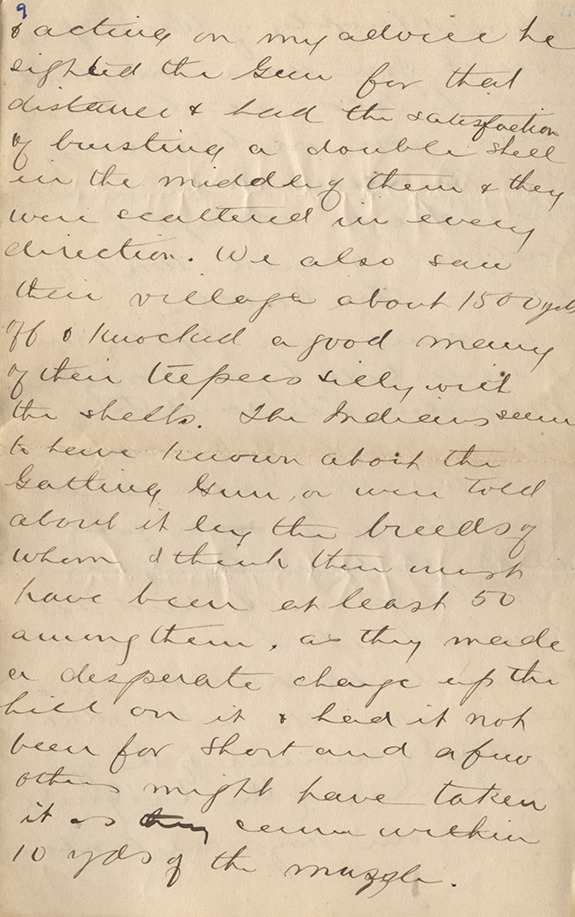 9
& acting on my advice he
sighted the Gun for that
distance & had the satisfaction
of bursting a double shell
in the middle of them & they
were scattered in every
direction. We also saw
their village about 1500 yds
off & knocked a good many
of their teepees silly with
the shells. The Indians seem
to have known about the
Gatling Gun, or were told
about it by the breeds of
whom I think there must
have been at least 50
among them, as they made
a desperate charge up the
hill on it & had it not
been for Short and a few
others might have taken
it as they came within
10 yds of the muzzle.